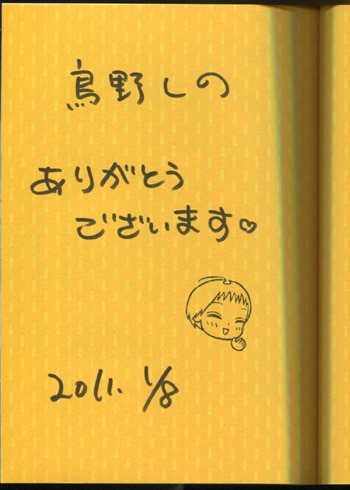 鳥野しの
ありがとう
ございます♡
2011. 1/8